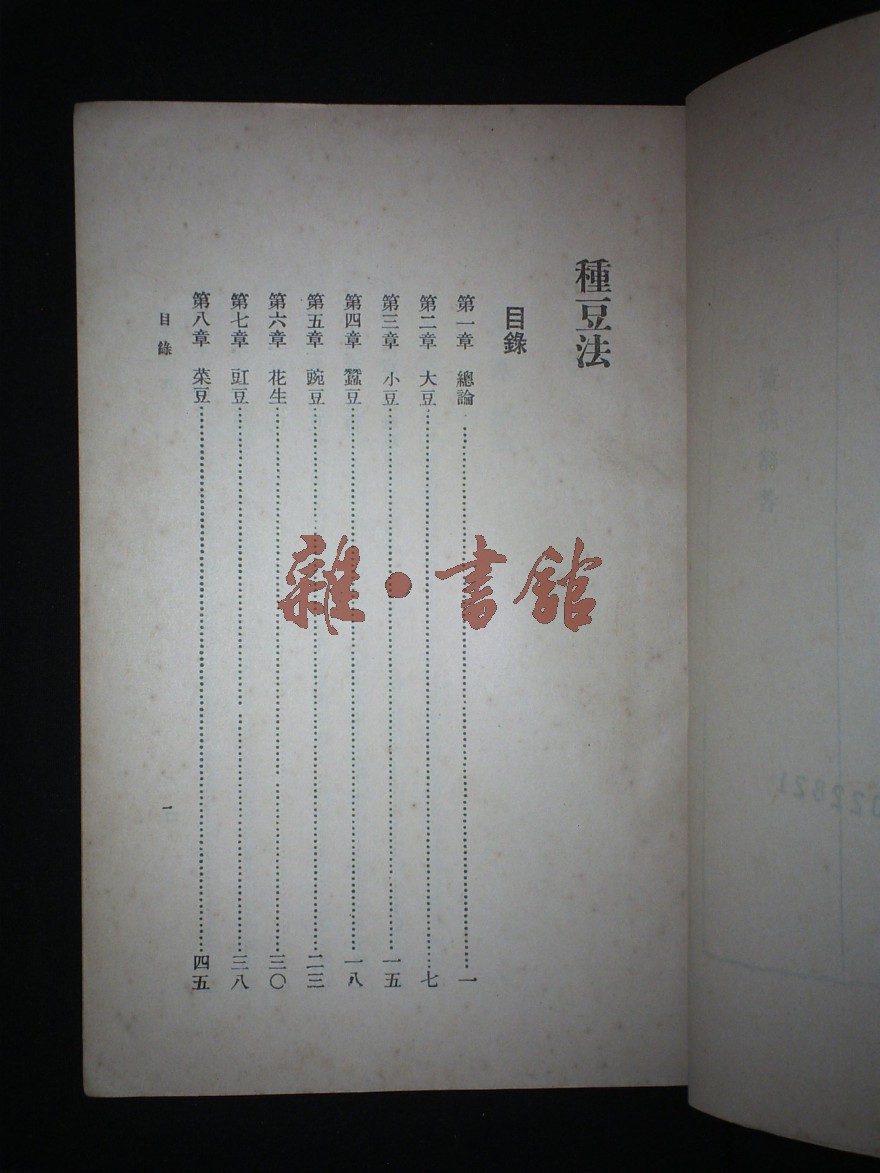 種豆法
目錄
第一章 總論 一
第二章 大豆 七
第三章 小豆 一五
第四章 蠶豆 一八
第五章 豌豆 二三
第六章 花生 三〇
第七章 豇豆 三八
第八章 菜豆 四五
目錄
一
雜·書館